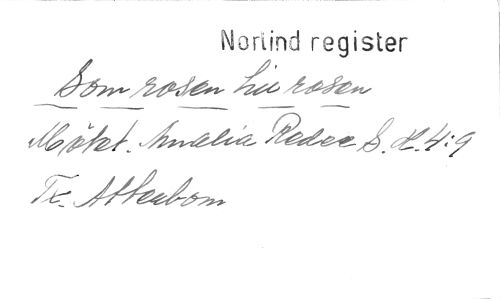 Norlind register
Som rosen lik rosen
Mötet. Amalia Redec S. H. 4:9
Tx. Atterbom